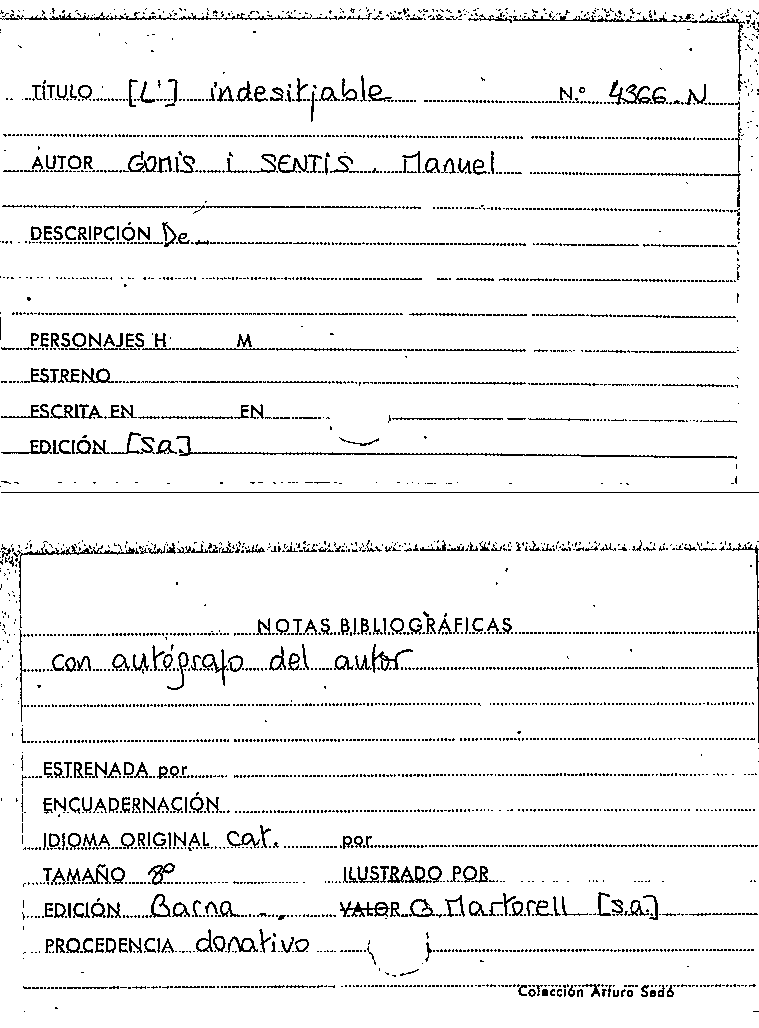 TÍTULO [L'] indesitjable N.º 4366 N
AUTOR GOMIS i SENTIS, Manuel
DESCRIPCIÓN De
PERSONAJES H M
ESTRENO
ESCRITA EN EN
EDICIÓN [Sa]
NOTAS BIBLIOGRÁFICAS
con autógrafo del autor
ESTRENADA por
ENCUADERNACIÓN
IDIOMA ORIGINAL cat. por
TAMAÑO 8º ILUSTRADO POR
EDICIÓN Barna VALOR Martorell [s.a.]
PROCEDENCIA donativo
Colección Arturo Sedó